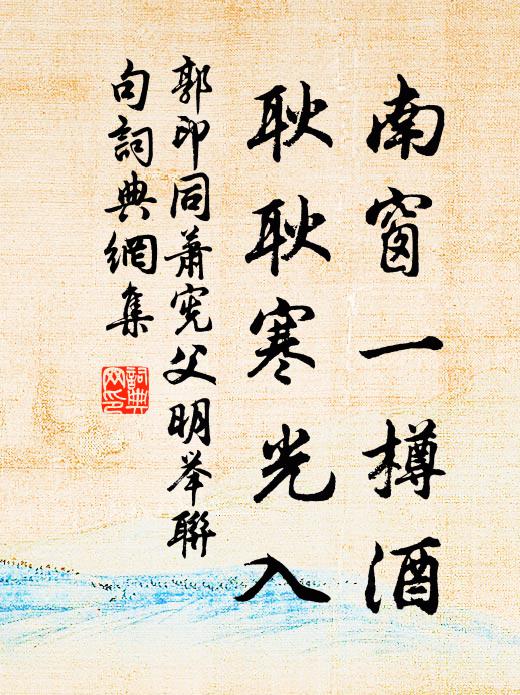 南窗一樽酒
耿耿寒光入
郭印同萧宪父明举联
句詞典網集
詞典網印